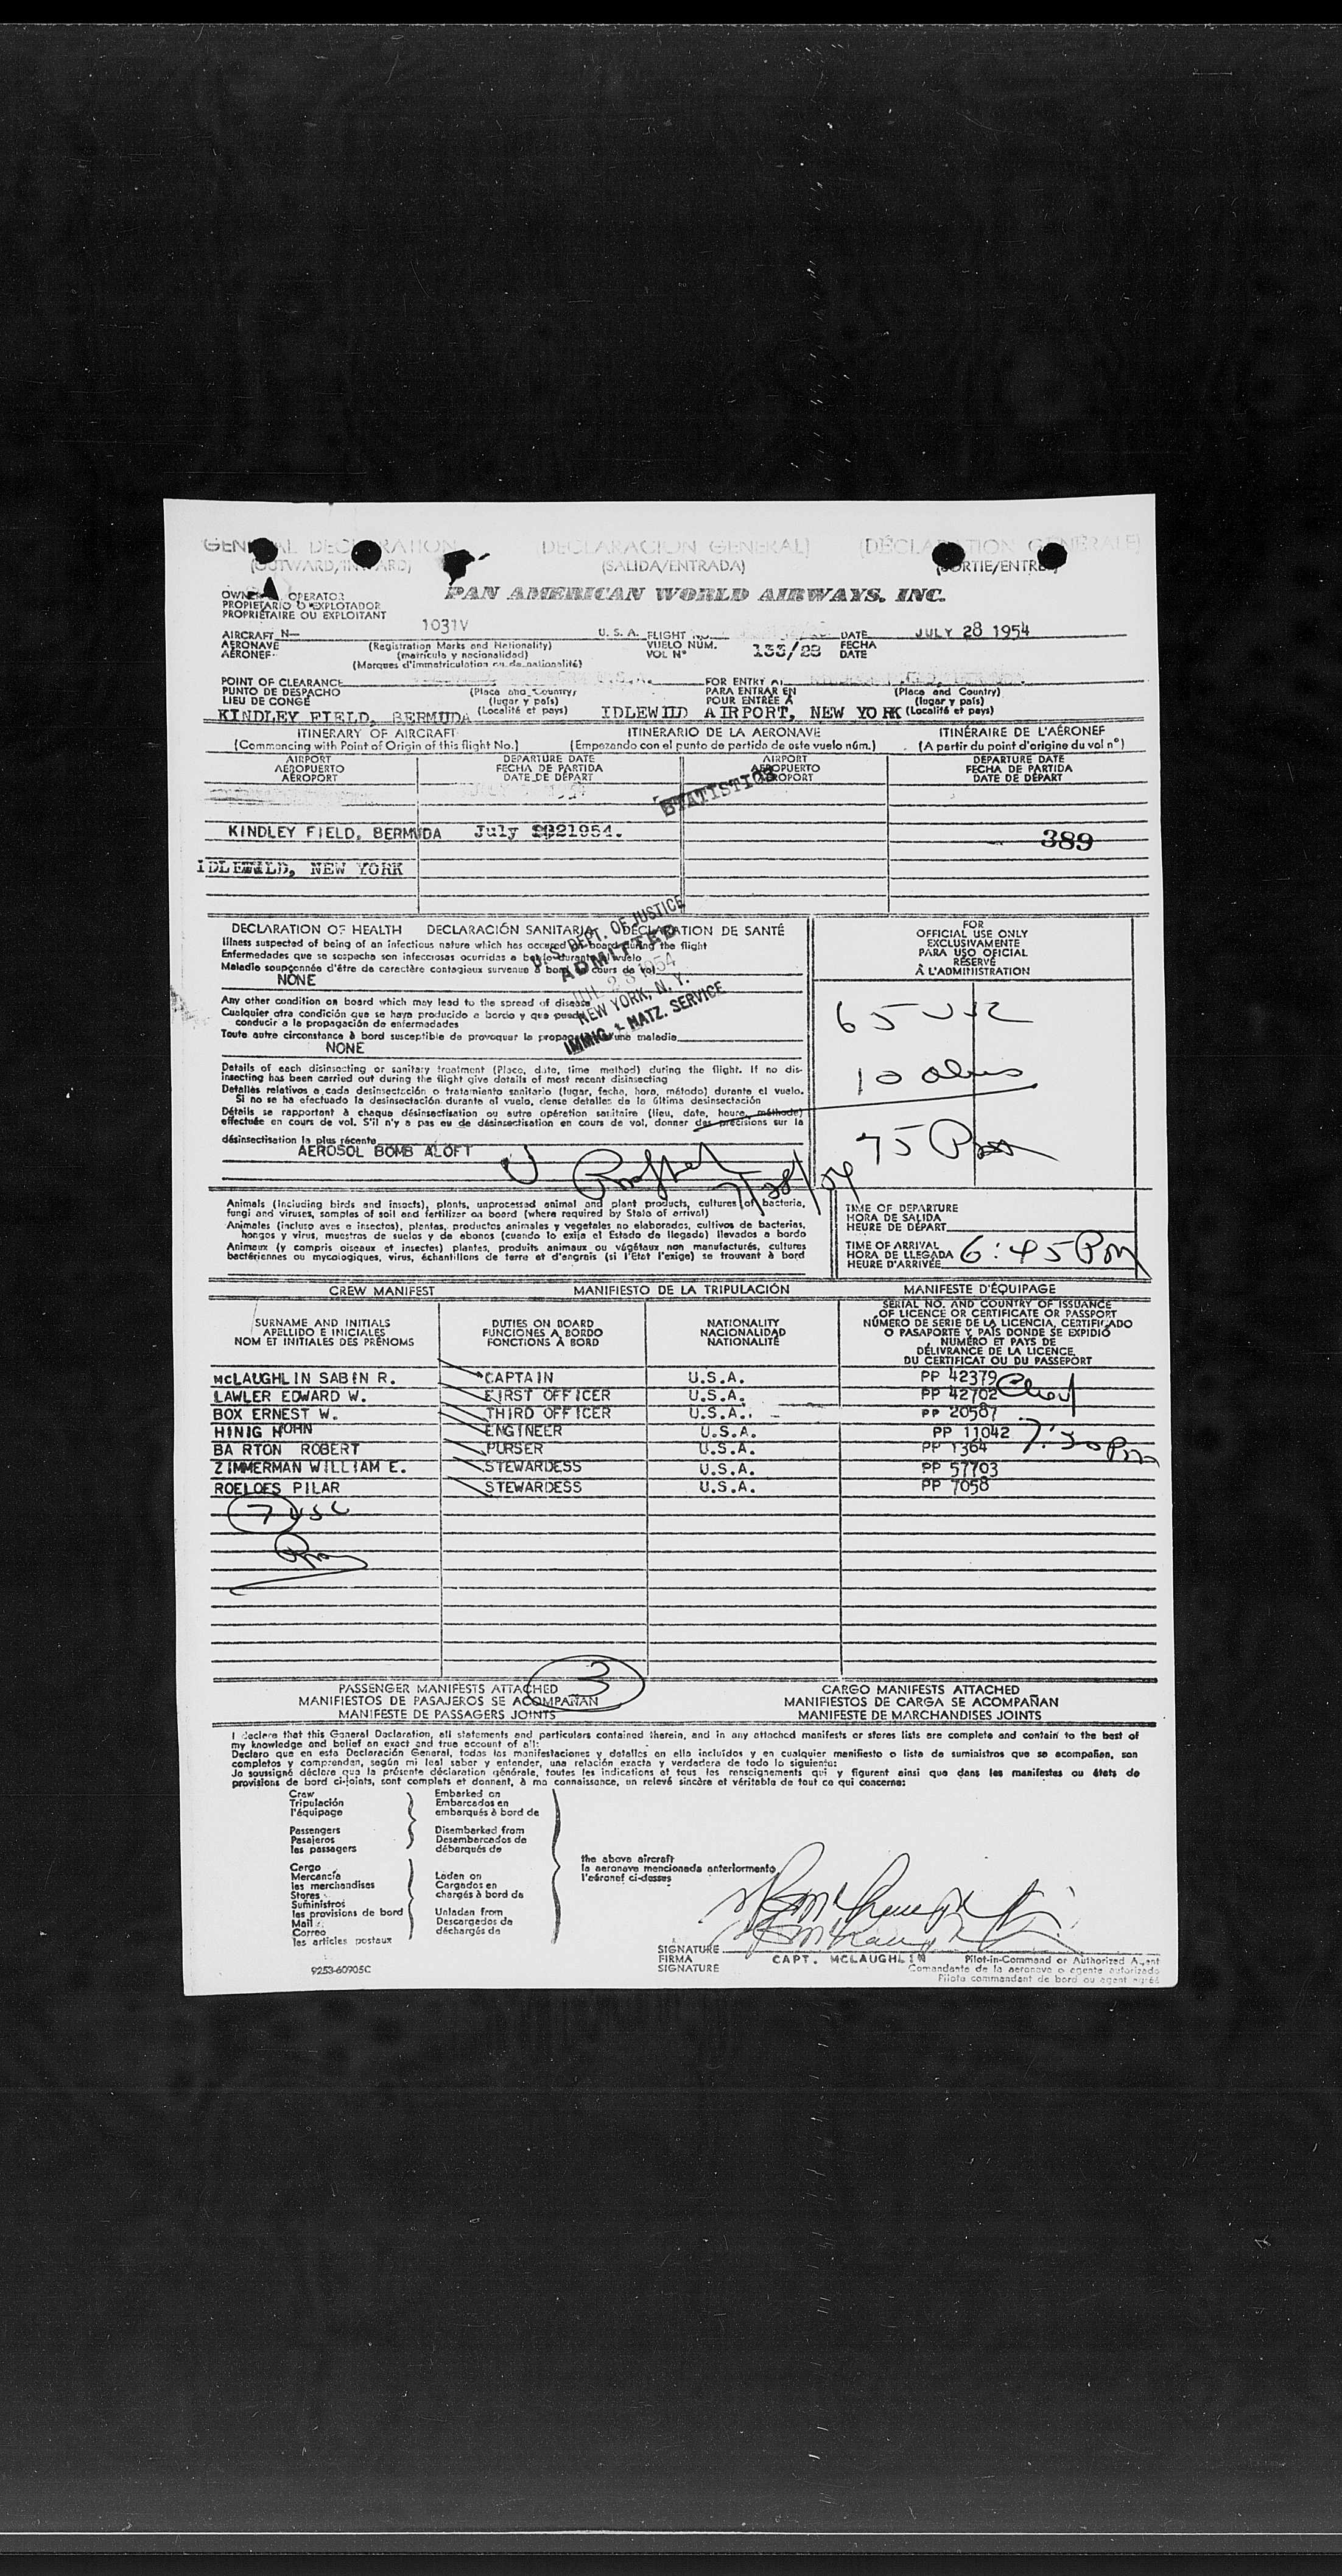 GENERAL DECLARATION [DECLARACION GENERAL] [DÉCLARATION GÉNÉRALE]
(OUTWARD/INWARD) (SALIDA/ENTRADA) (SORTIE/ENTRÉE)
OWNER OPERATOR
PROPIETARIO O EXPLOTADOR
PROPRIÉTAIRE OU EXPLOITANT
PAN AMERICAN WORLD AIRWAYS, INC.
AIRCRAFT N— 1031V U. S. A. FLIGHT DATE JULY 28 1954
AERONAVE (Registration Marks and Nationality) VUELO NUM. 133/28 FECHA
AÉRONEF (matrícula y nacionalidad) VOL Nº DATE
(Marques d'immatriculation ou de nationalité)
POINT OF CLEARANCE FOR ENTRY AT
PUNTO DE DESPACHO (Place and Country) PARA ENTRAR EN (Place and Country)
LIEU DE CONGÉ (lugar y país) POUR ENTRÉE À (lugar y país)
KINDLEY FIELD, BERMUDA (Localité et pays) IDLEWILD AIRPORT, NEW YORK (Localité et pays)
ITINERARY OF AIRCRAFT ITINERARIO DE LA AERONAVE ITINÉRAIRE DE L'AÉRONEF
(Commencing with Point of Origin of this flight No.) (Empezando con el punto de partida de este vuelo núm.) (A partir du point d'origine du vol nº)
AIRPORT DEPARTURE DATE AIRPORT DEPARTURE DATE
AEROPUERTO FECHA DE PARTIDA AEROPUERTO FECHA DE PARTIDA
AÉROPORT DATE DE DÉPART AÉROPORT DATE DE DÉPART
STATISTICS
KINDLEY FIELD, BERMUDA July 1954. 389
IDLEWILD, NEW YORK
DECLARATION OF HEALTH DECLARACIÓN SANITARIA DÉCLARATION DE SANTÉ
Illness suspected of being of an infectious nature which has occured on board during the flight
Enfermedades que se sospecha son infecciosas ocurridas a bordo durante el vuelo
Maladie soupçonnée d'être de caractère contagieux survenue à bord au cours de vol
NONE
Any other condition on board which may lead to the spread of disease
Cualquier otra condición que se haya producido a bordo y que puede
conducir a la propagación de enfermedades
Toute autre circonstance à bord susceptible de provoquer la propagation d'une maladie
NONE
U. S. DEPT. OF JUSTICE
ADMITTED
JUL 28 1954
NEW YORK, N. Y.
IMMIG. & NATZ. SERVICE
Details of each disinsecting or sanitary treatment (Place, date, time method) during the flight. If no dis-
insecting has been carried out during the flight give details of most recent disinsecting
Detalles relativos a cada desinsectación o tratamiento sanitario (lugar, fecha, hora, método) durante el vuelo.
Si no se ha efectuado la desinsectación durante el vuelo, dense detalles de la última desinsectación
Détails se rapportant à chaque désinsectisation ou autre opération sanitaire (lieu, date, heure, méthode)
effectuée en cours de vol. S'il n'y a pas eu de désinsectisation en cours de vol, donner des précisions sur la
désinsectisation la plus récente
AEROSOL BOMB ALOFT
7/28/54
FOR
OFFICIAL USE ONLY
EXCLUSIVAMENTE
PARA USO OFICIAL
RÉSERVÉ
À L'ADMINISTRATION
65 USC
10 aliens
75
Animals (including birds and insects), plants, unprocessed animal and plant products, cultures of bacteria,
fungi and viruses, samples of soil and fertilizer on board (where required by State of arrival)
Animales (incluso aves e insectos), plantas, productos animales y vegetales no elaborados, cultivos de bacterias,
hongos y virus, muestras de suelos y de abonos (cuando lo exija el Estado de llegada) llevados a bordo
Animaux (y compris oiseaux et insectes) plantes, produits animaux ou végétaux non manufacturés, cultures
bactériennes ou mycologiques, virus, échantillons de terre et d'engrais (si l'Etat l'exige) se trouvant à bord
TIME OF DEPARTURE
HORA DE SALIDA
HEURE DE DÉPART
TIME OF ARRIVAL
HORA DE LLEGADA 6:45 PM
HEURE D'ARRIVÉE
CREW MANIFEST MANIFIESTO DE LA TRIPULACIÓN MANIFESTE D'ÉQUIPAGE
SURNAME AND INITIALS
APELLIDO E INICIALES
NOM ET INITIALES DES PRÉNOMS
DUTIES ON BOARD
FUNCIONES A BORDO
FONCTIONS À BORD
NATIONALITY
NACIONALIDAD
NATIONALITÉ
SERIAL NO. AND COUNTRY OF ISSUANCE
OF LICENCE OR CERTIFICATE OR PASSPORT
NÚMERO DE SERIE DE LA LICENCIA, CERTIFICADO
O PASAPORTE Y PAÍS DONDE SE EXPIDIÓ
NUMÉRO ET PAYS DE
DÉLIVRANCE DE LA LICENCE,
DU CERTIFICAT OU DU PASSEPORT
McLAUGHLIN SABIN R. CAPTAIN U.S.A. PP 42379
LAWLER EDWARD W. FIRST OFFICER U.S.A. PP 42702
BOX ERNEST W. THIRD OFFICER U.S.A. PP 20587
HINIG HOHN ENGINEER U.S.A. PP 11042 7:30 Pm
BARTON ROBERT PURSER U.S.A. PP 1364
ZIMMERMAN WILLIAM E. STEWARDESS U.S.A. PP 57703
ROELOFS PILAR STEWARDESS U.S.A. PP 7058
7 USC
3
PASSENGER MANIFESTS ATTACHED CARGO MANIFESTS ATTACHED
MANIFIESTOS DE PASAJEROS SE ACOMPAÑAN MANIFIESTOS DE CARGA SE ACOMPAÑAN
MANIFESTE DE PASSAGERS JOINTS MANIFESTE DE MARCHANDISES JOINTS
I declare that this General Declaration, all statements and particulars contained therein, and in any attached manifests or stores lists are complete and contain to the best of
my knowledge and belief an exact and true account of all:
Declaro que en esta Declaración General, todas las manifestaciones y detalles en ella incluídos y en cualquier manifiesto o lista de suministros que se acompañan, son
completos y comprenden, según mi leal saber y entender, una relación exacta y verdadera de todo lo siguiente:
Je soussigné déclare que la présente déclaration générale, toutes les indications et tous les renseignements qui y figurent ainsi que dans les manifestes ou états de
provisions de bord ci-joints, sont complets et donnent, à ma connaissance, un relevé sincère et véritable de tout ce qui concerne:
Crew
Tripulación
l'équipage
Passengers
Pasajeros
les passagers
Cargo
Mercancía
les merchandises
Stores
Suministros
les provisions de bord
Mail
Correo
les articles postaux
Embarked on
Embarcados en
embarqués à bord de
Disembarked from
Desembarcados de
débarqués de
Laden on
Cargados en
chargés à bord de
Unladen from
Descargados de
déchargés de
the above aircraft
la aeronave mencionada anteriormente
l'aéronef ci-dessus
SIGNATURE
FIRMA CAPT. MCLAUGHLIN Pilot-in-Command or Authorized Agent
SIGNATURE Comandante de la aeronave o agente autorizado
Pilote commandant de bord ou agent agréé
9253-60905C